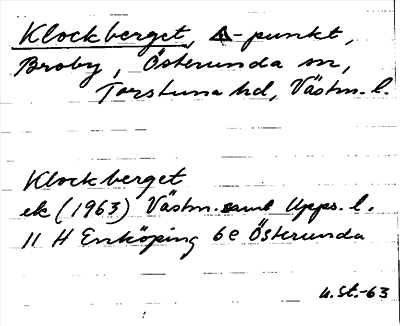 Klockberget, Δ-punkt,
Broby, Österunda sn,
Torstuna hd, Västm. l.
Klockberget
ek (1963) Västm. samt Upps. l.
11 H Enköping 6e Österunda
u.st.-63